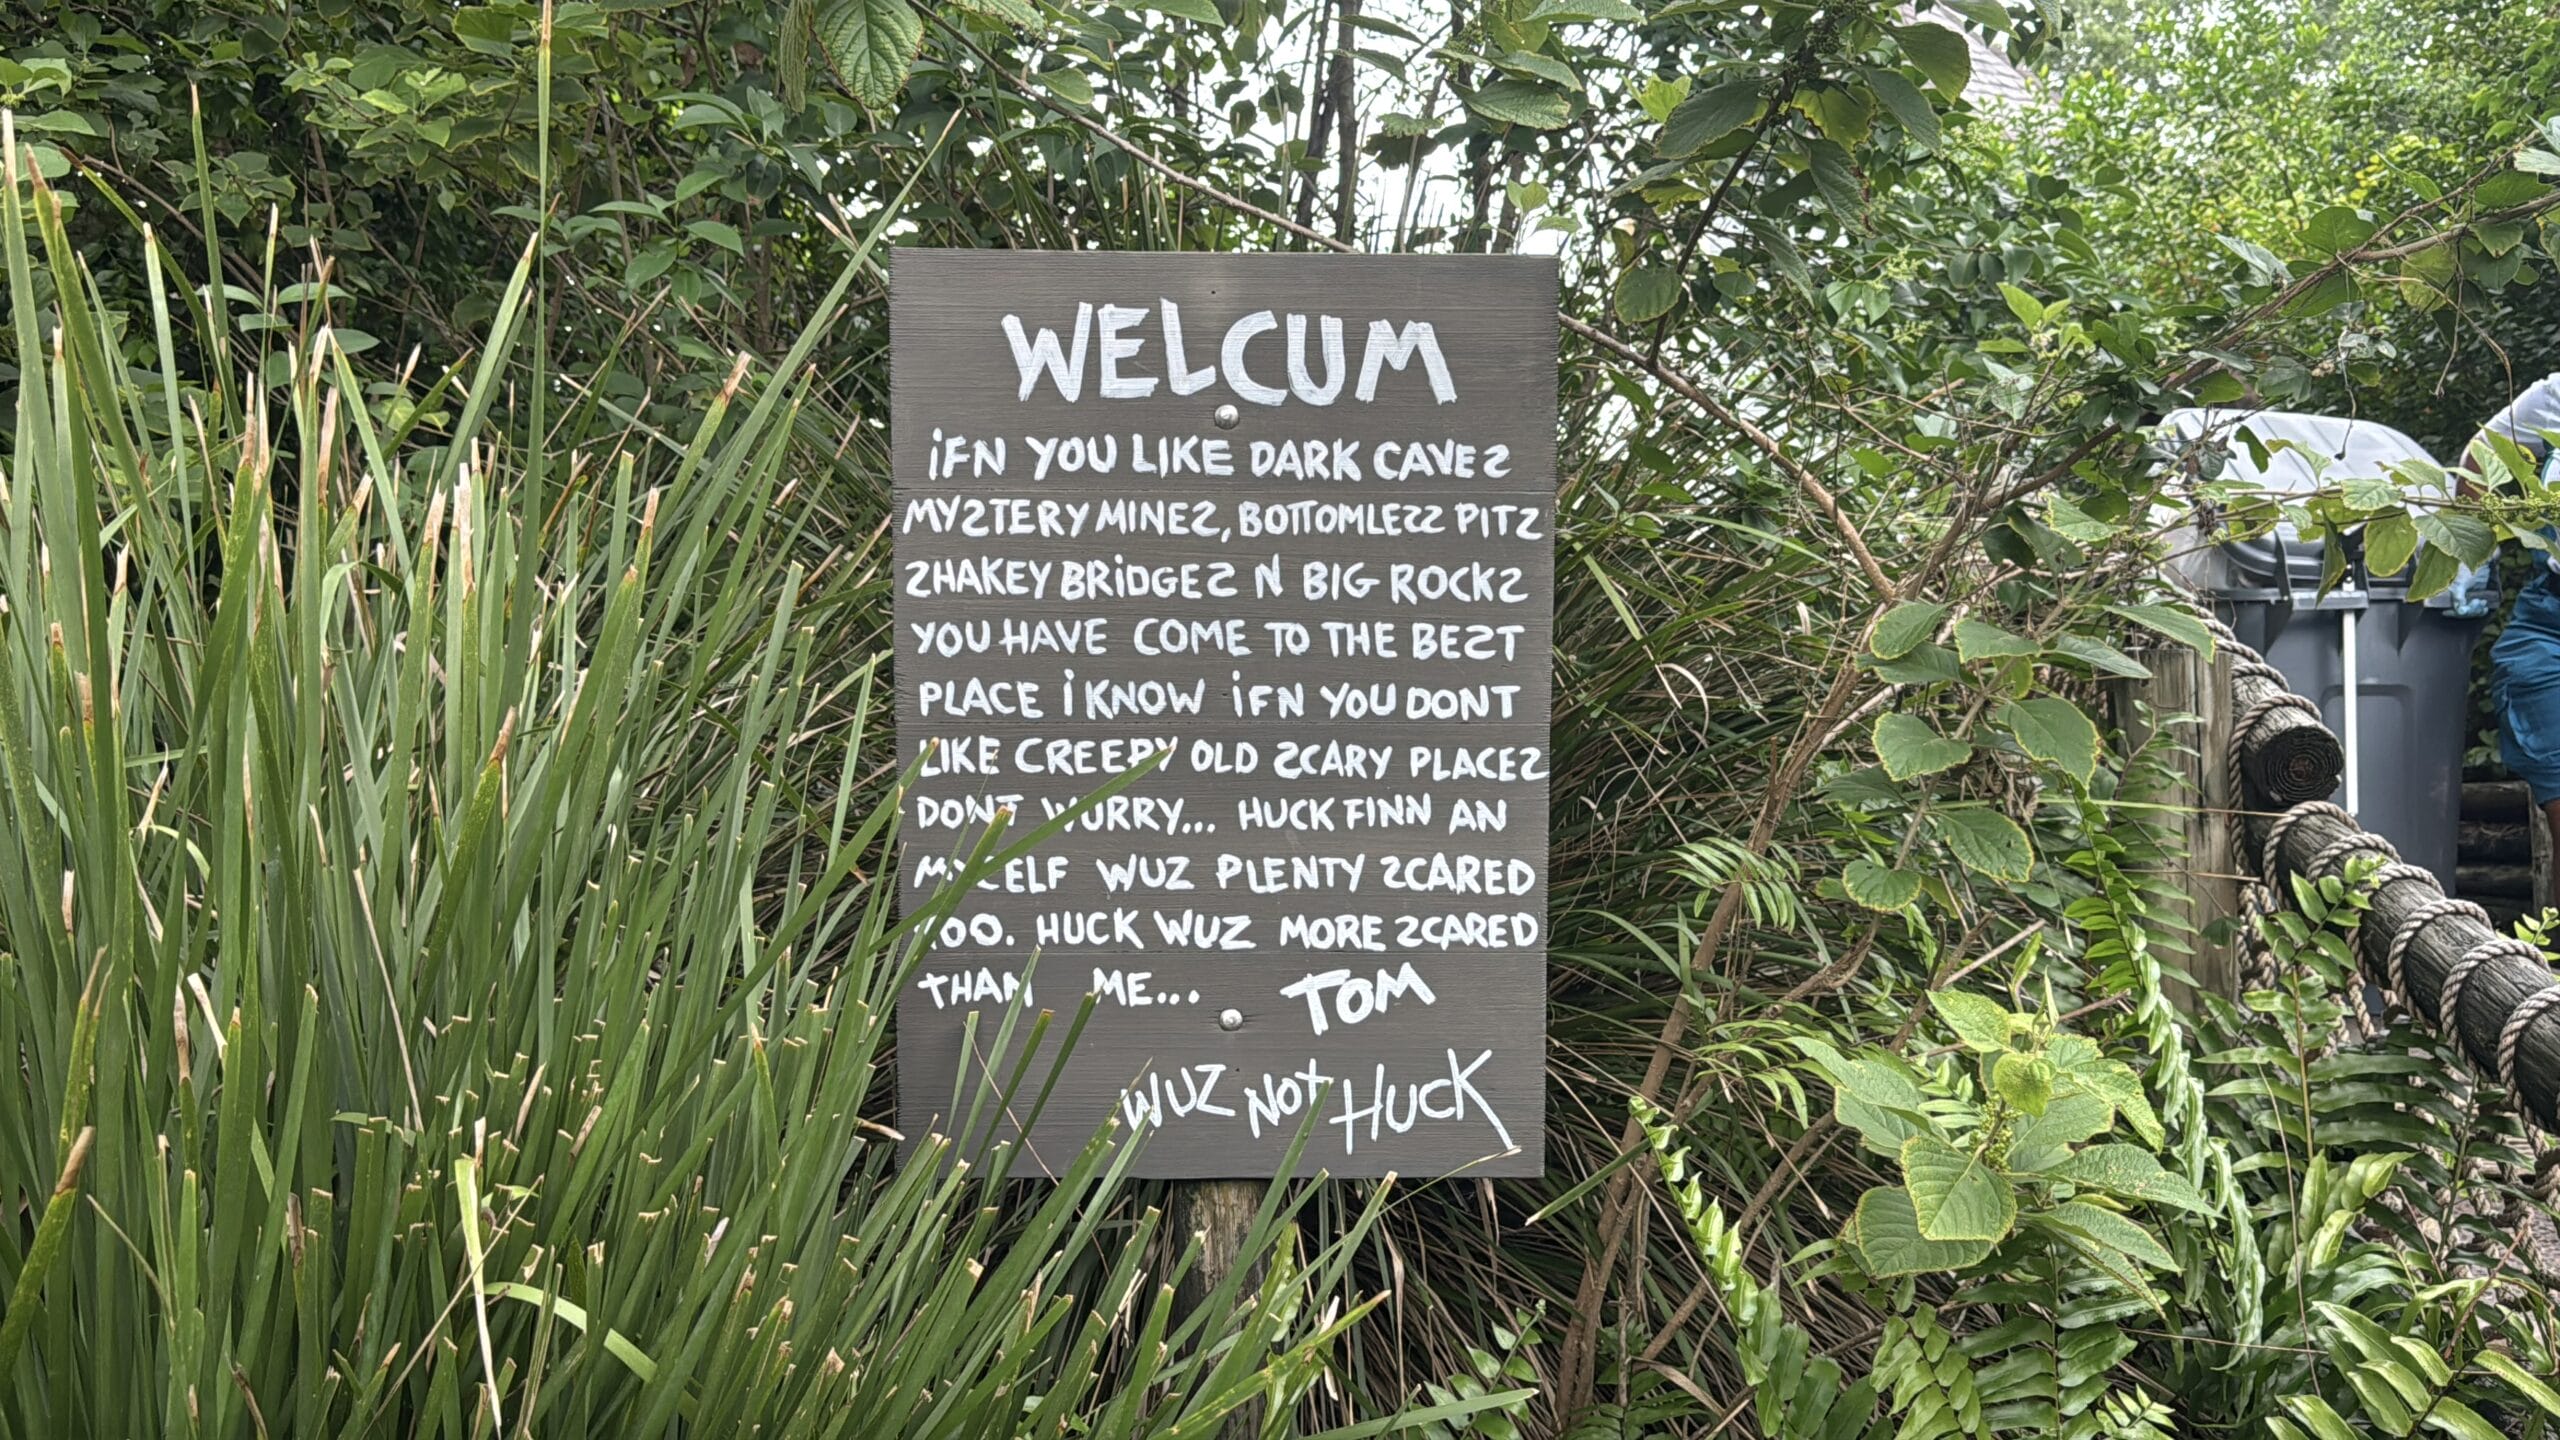 WELCUM
iFN YOU LIKE DARK CAVES
MYSTERY MINES, BOTTOMLESS PITS
SHAKEY BRiDGES N BIG ROCKS
YOU HAVE COME TO THE BEST
PLACE i KNOW iFN YOU DONT
LIKE CREEPY OLD SCARY PLACES
DONT WURRY... HUCK FINN AN
MYCELF WUZ PLENTY SCARED
TOO. HUCK WUZ MORE SCARED
THAN ME... TOM
WUZ NOT HUCK